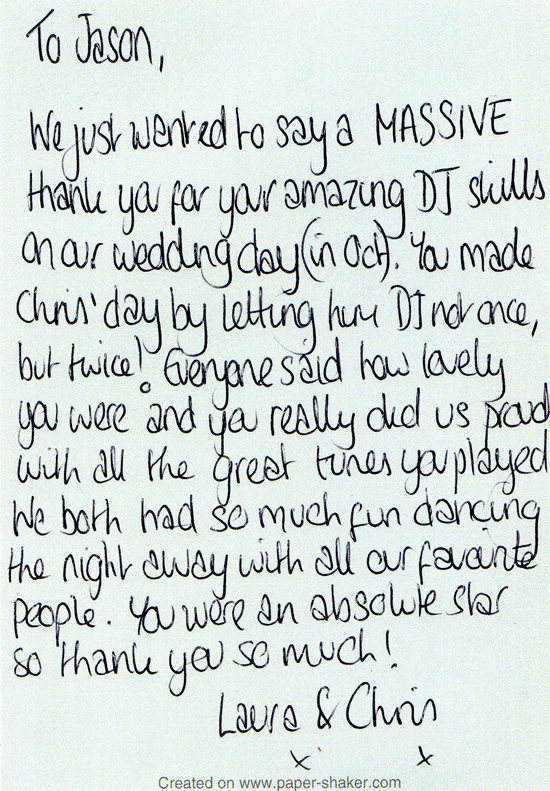 To Jason,
We just wanted to say a MASSIVE
thank you for your amazing DJ skills
on our wedding day (in Oct). You made
Chris' day by letting him DJ not once,
but twice! Everyone said how lovely
you were and you really did us proud
with all the great tunes you played
We both had so much fun dancing
the night away with all our favourite
people. You were an absolute star
so thank you so much!
Laura & Chris
x x
Created on www.paper-shaker.com